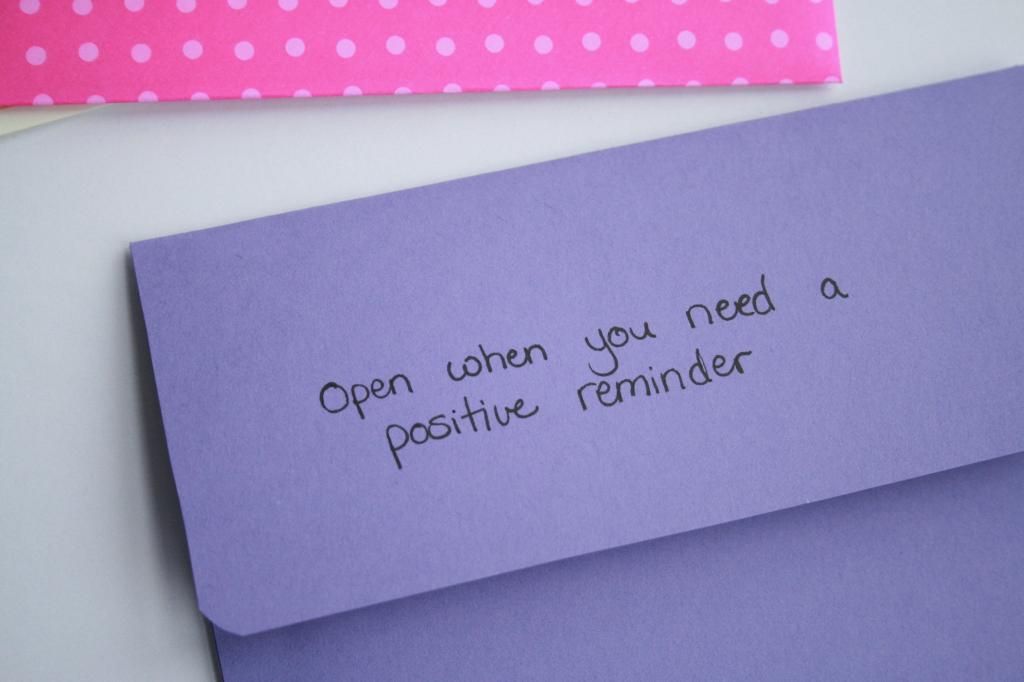 Open when you need a
positive reminder